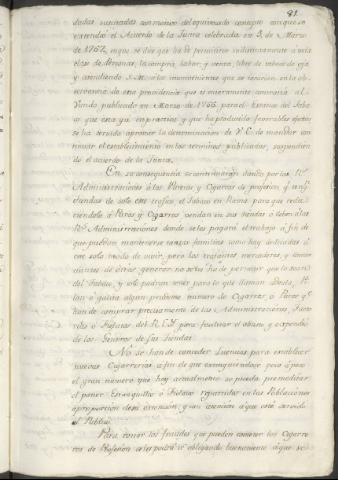 81
dudas suscitadas con motivo del equivocado concepto con que se
extendió el Acuerdo de la Junta celebrada en 3, de Marzo
de 1767, en que se dice que ha de permitirse indistintamente á toda
clase de Personas, la compra, labor, y venta, libre de tabaco de oja
y atendiendo S.M. á los inconvenientes que se tocarian en la ob-
servancia de esta providencia que es enteramente contraria al
Vando publicado en Marzo de 1766, para el Estanco del Taba-
co que esta yá en practica y que ha producido favorables efectos
se ha servido aprovar la determinacion de V.E. de mandar con-
tinuar el establecimiento en los terminos publicados, suspendien-
do el acuerdo de la Junta.
En su consequencia se continuará dando por las Rs.
Administraciones á los Pureros y Cigarros de profesion, y
tiendas de solo este trafico el Tabaco en Rama para que redu-
ciendole á Puros y Cigarros vendan en sus tiendas ó deban á las
Rs. Administraciones donde se les pagará el trabajo á fin de
que puedan mantenerse tantas familias como hay dedicadas á
este solo modo de vivir, pero los tragantes mercaderes, y
dientes de otros generos no se les ha de permitir que
del Tabaco, y solo podran tener para lo que llaman
lan ó quita algun proximo numero de Cigarros ó Puros q.e
han de comprar precisamente de las Administraciones, Terce-
nas ó Fielatos del Rey para facilitar el abono y expendio
de los Generos de sus Tiendas.
No se han de conceder Licencias para establecer
nuevas Cigarrerias á fin de que extinguiendose poco á poco
el gran numero que hay actualmente se pueda premeditar
el poner Estanquillos ó Fielatos repartidos en las Poblaciones
á proporcion de su extension, y en atencion á que esté servido
el Publico.
Para cortar los fraudes que pueden cometer los Cigarre-
ros de Profesion se les podrá ir obligando buenamente á que se